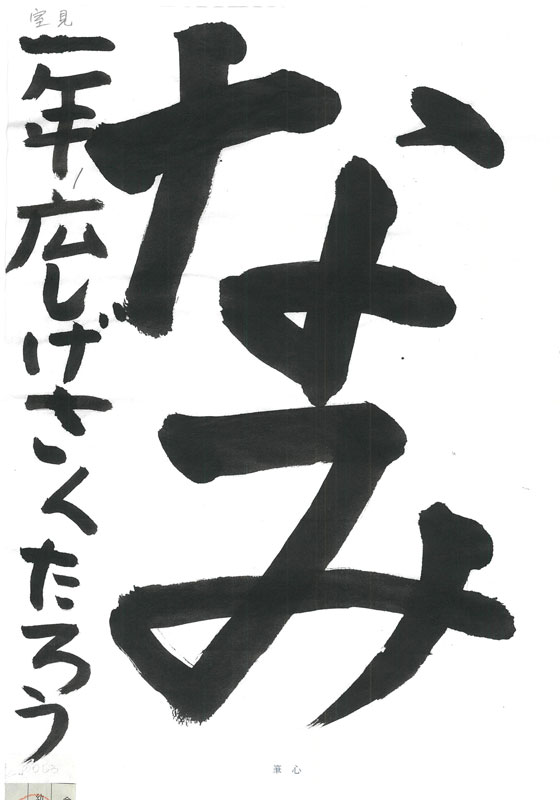 なみ
一年広しげさくたろう
室見
筆心